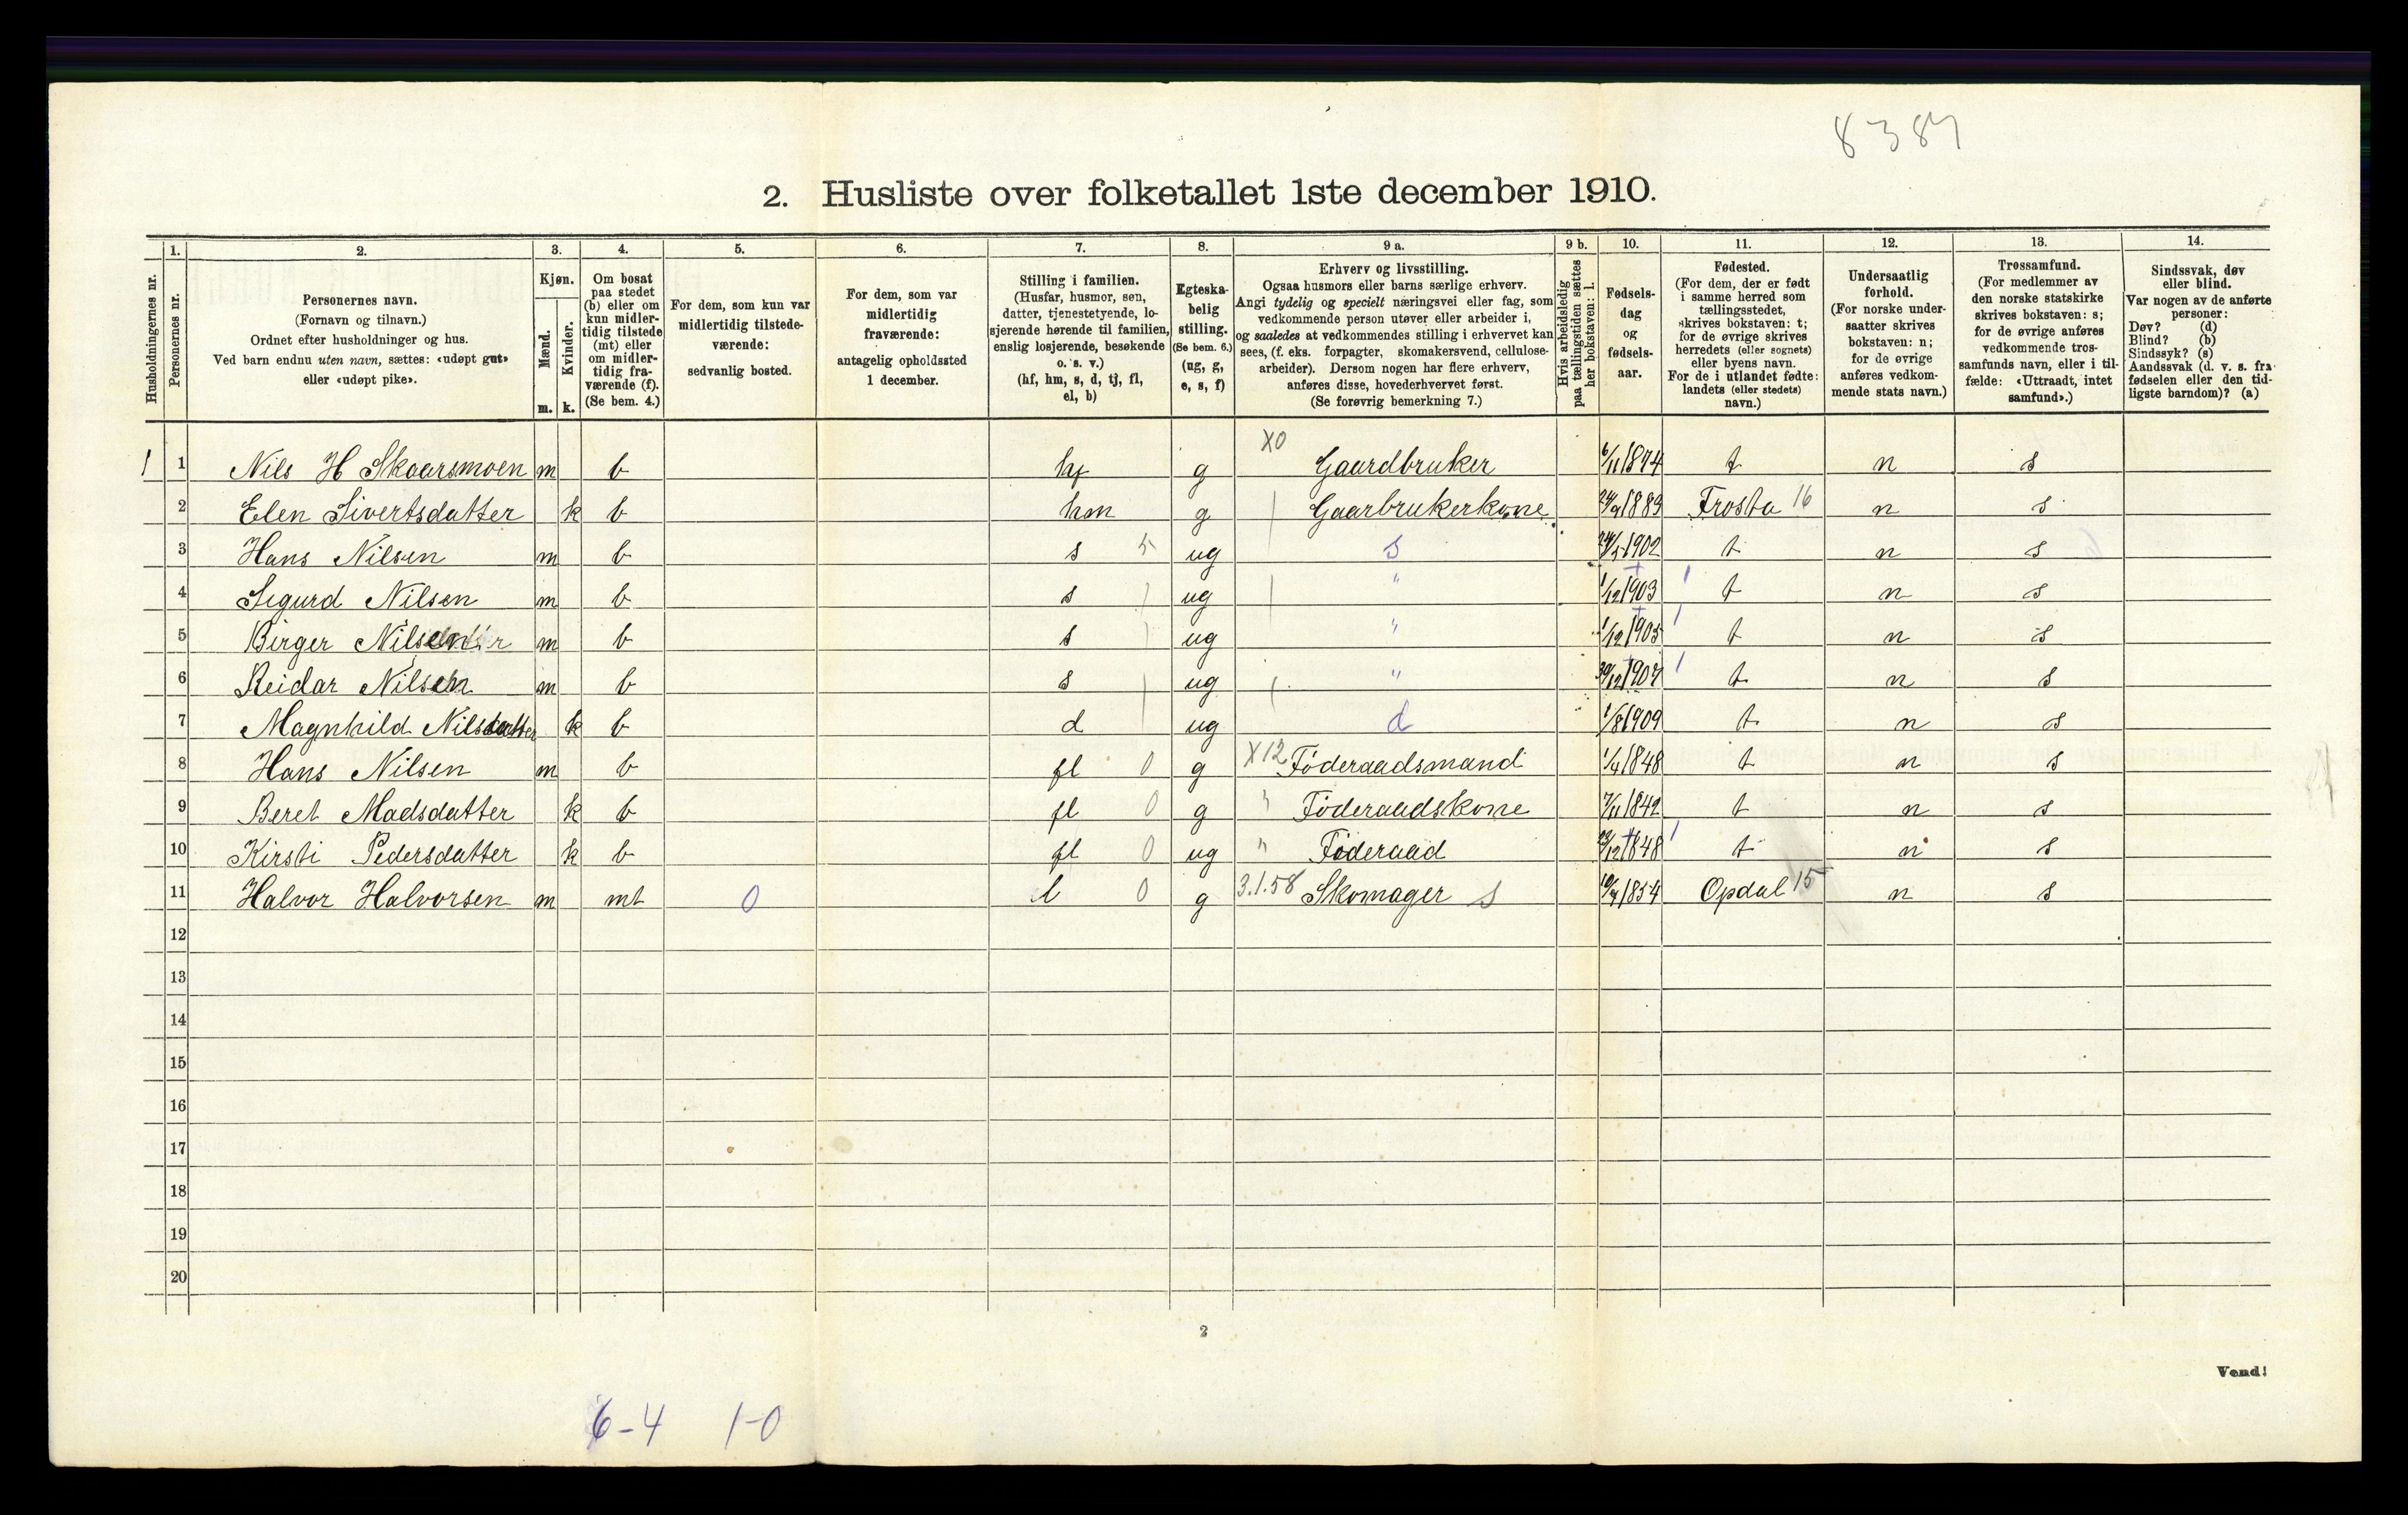 8387
2. Husliste over folketallet 1ste december 1910.
Husholdningernes nr.
1. Personernes nr.
2. Personernes navn.
(Fornavn og tilnavn.)
Ordnet efter husholdninger og hus.
Ved barn endnu uten navn, sættes: «udøpt gut»
eller «udøpt pike».
3. Kjøn.
Mænd. Kvinder.
m. k.
4. Om bosat
paa stedet
(b) eller om
kun midler-
tidig tilstede
(mt) eller
om midler-
tidig fra-
værende (f).
(Se bem. 4.)
5. For dem, som kun var
midlertidig tilstede-
værende:
sedvanlig bosted.
6. For dem, som var
midlertidig
fraværende:
antagelig opholdssted
1 december.
7. Stilling i familien.
(Husfar, husmor, søn,
datter, tjenestetyende, lo-
sjerende hørende til familien,
enslig losjerende, besøkende
o. s. v.)
(hf, hm, s, d, tj, fl,
el, b)
8. Egteska-
belig
stilling.
(Se bem. 6.)
(ug, g,
e, s, f)
9 a. Erhverv og livsstilling.
Ogsaa husmors eller barns særlige erhverv.
Angi tydelig og specielt næringsvei eller fag, som
vedkommende person utøver eller arbeider i,
og saaledes at vedkommendes stilling i erhvervet kan
sees, (f. eks. forpagter, skomakersvend, cellulose-
arbeider). Dersom nogen har flere erhverv,
anføres disse, hovederhvervet først.
(Se forøvrig bemerkning 7.)
9 b. Hvis arbeidsledig
paa tællingstiden sættes
her bokstaven: l.
10. Fødsels-
dag
og
fødsels-
aar.
11. Fødested.
(For dem, der er født
i samme herred som
tællingsstedet,
skrives bokstaven: t;
for de øvrige skrives
herredets (eller sognets)
eller byens navn.
For de i utlandet fødte:
landets (eller stedets)
navn.)
12. Undersaatlig
forhold.
(For norske under-
saatter skrives
bokstaven: n;
for de øvrige
anføres vedkom-
mende stats navn.)
13. Trossamfund.
(For medlemmer av
den norske statskirke
skrives bokstaven: s;
for de øvrige anføres
vedkommende tros-
samfunds navn, eller i til-
fælde: «Uttraadt, intet
samfund».)
14. Sindssvak, døv
eller blind.
Var nogen av de anførte
personer:
Døv? (d)
Blind? (b)
Sindssyk? (s)
Aandssvak (d. v. s. fra
fødselen eller den tid-
ligste barndom)? (a)
1 1 Nils H Skaarsmoen m b hf g X0 Gaardbruker 6/11 1874 t n s
2 Elen Sivertsdatter k b hm g Gaarbrukerkone 24/9 1883 Frosta 16 n s
3 Hans Nilsen m b s 5 ug S 24/5 1902 t n s
4 Sigurd Nilsen m b s ug " 1/12 1903 1 t n s
5 Birger Nilsen m b s ug " 1/12 1905 1 t n s
6 Reidar Nilsen m b s ug " 30/12 1907 1 t n s
7 Magnhild Nilsdatter k b d ug d 1/8 1909 t n s
8 Hans Nilsen m b fl 0 g X12 Föderaadsmand 1/4 1848 t n s
9 Beret Madsdatter k b fl 0 g " Föderaadskone 7/11 1842 t n s
10 Kirsti Pedersdatter k b fl 0 ug " Föderaad 23/12 1848 1 t n s
11 Halvor Halvorsen m mt 0 l 0 g 3.1.58 Skomager S 10/9 1854 Opdal 15 n s
12
13
14
15
16
17
18
19
20
2
Vend!
6-4 1-0